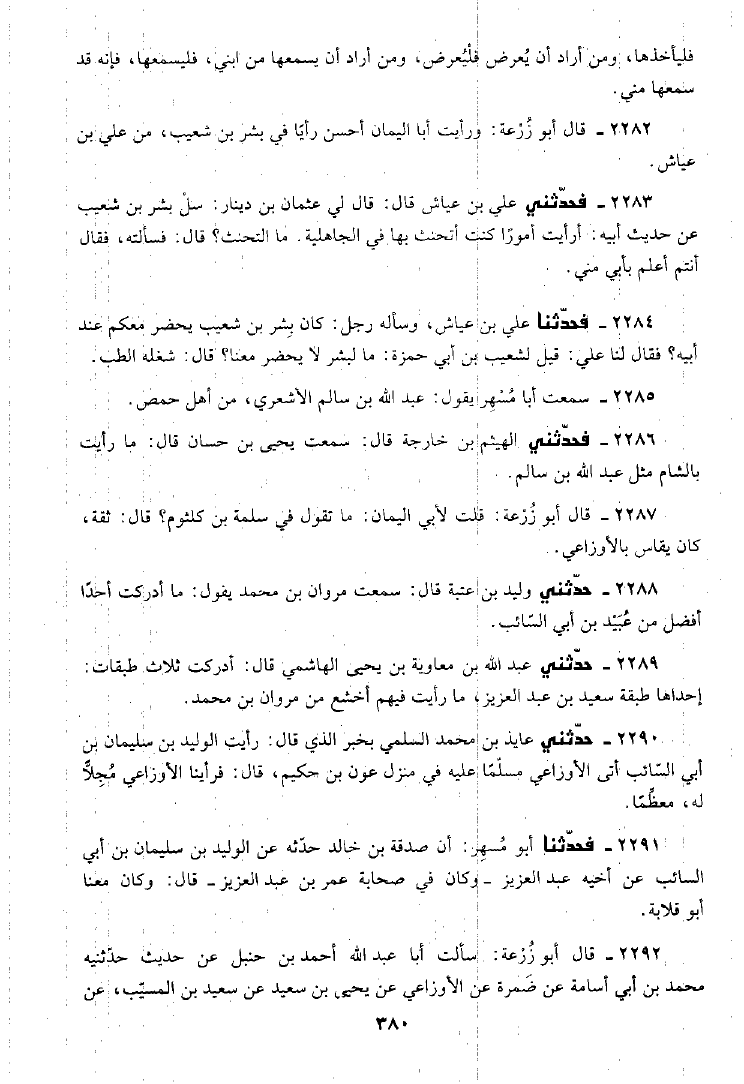 فليأخذها، ومن أراد أن يُعرض فلْيُعرض، ومن أراد أن يسمعها من ابني، فليسمعها، فإنه قد
سمعها مني.
٢٢٨٢ ـ قال أبو زُرْعة: ورأيت أبا اليمان أحسن رأيًا في بشر بن شعيب، من علي بن
عياش.
٢٢٨٣ ـ فحدّثني علي بن عياش قال: قال لي عثمان بن دينار: سلْ بشر بن شعيب
عن حديث أبيه: أرأيت أمورًا كنت أتحنث بها في الجاهلية. ما التحنث؟ قال: فسألته، فقال
أنتم أعلم بأبي مني.
٢٢٨٤ ـ فحدّثنا علي بن عياش، وسأله رجل: كان بِشر بن شعيب يحضر معكم عند
أبيه؟ فقال لنا علي: قيل لشعيب بن أبي حمزة: ما لبشر لا يحضر معنا؟ قال: شغله الطب.
٢٢٨٥ ـ سمعت أبا مُسْهِر يقول: عبد الله بن سالم الأشعري، من أهل حمص.
٢٢٨٦ ـ فحدّثني الهيثم بن خارجة قال: سمعت يحيى بن حسان قال: ما رأيت
بالشام مثل عبد الله بن سالم.
٢٢٨٧ ـ قال أبو زُرْعة: قلت لأبي اليمان: ما تقول في سلمة بن كلثوم؟ قال: ثقة،
كان يقاس بالأوزاعي.
٢٢٨٨ ـ حدّثني وليد بن عتبة قال: سمعت مروان بن محمد يقول: ما أدركت أحدًا
أفضل من عُبَيْد بن أبي السّائب.
٢٢٨٩ ـ حدّثني عبد الله بن معاوية بن يحيى الهاشمي قال: أدركت ثلاث طبقات:
إحداها طبقة سعيد بن عبد العزيز، ما رأيت فيهم أخشع من مروان بن محمد.
٢٢٩٠ ـ حدّثني عايذ بن محمد السلمي بخبر الذي قال: رأيت الوليد بن سليمان بن
أبي السّائب أتى الأوزاعي مسلّمًا عليه في منزل عون بن حكيم، قال: فرأينا الأوزاعي مُجِلاًّ
له، معظِّمًا.
٢٢٩١ ـ فحدّثنا أبو مُسهِر: أن صدقة بن خالد حدّثه عن الوليد بن سليمان بن أبي
السائب عن أخيه عبد العزيز ـ وكان في صحابة عمر بن عبد العزيز ـ قال: وكان معنا
أبو قلابة.
٢٢٩٢ ـ قال أبو زُرْعة: سألت أبا عبد الله أحمد بن حنبل عن حديث حدّثنيه
محمد بن أبي أسامة عن ضَمرة عن الأوزاعي عن يحيى بن سعيد عن سعيد بن المسيّب، عن
٣٨٠